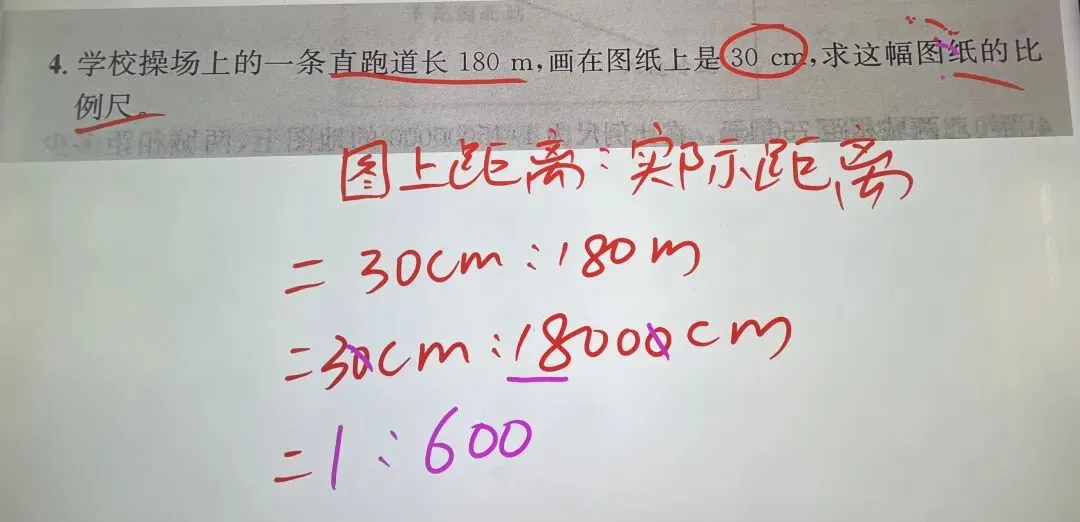 4. 学校操场上的一条直跑道长 180 m,画在图纸上是 30 cm,求这幅图纸的比
例尺。
图上距离:实际距离
= 30cm:180m
=30cm:18000cm
=1:600